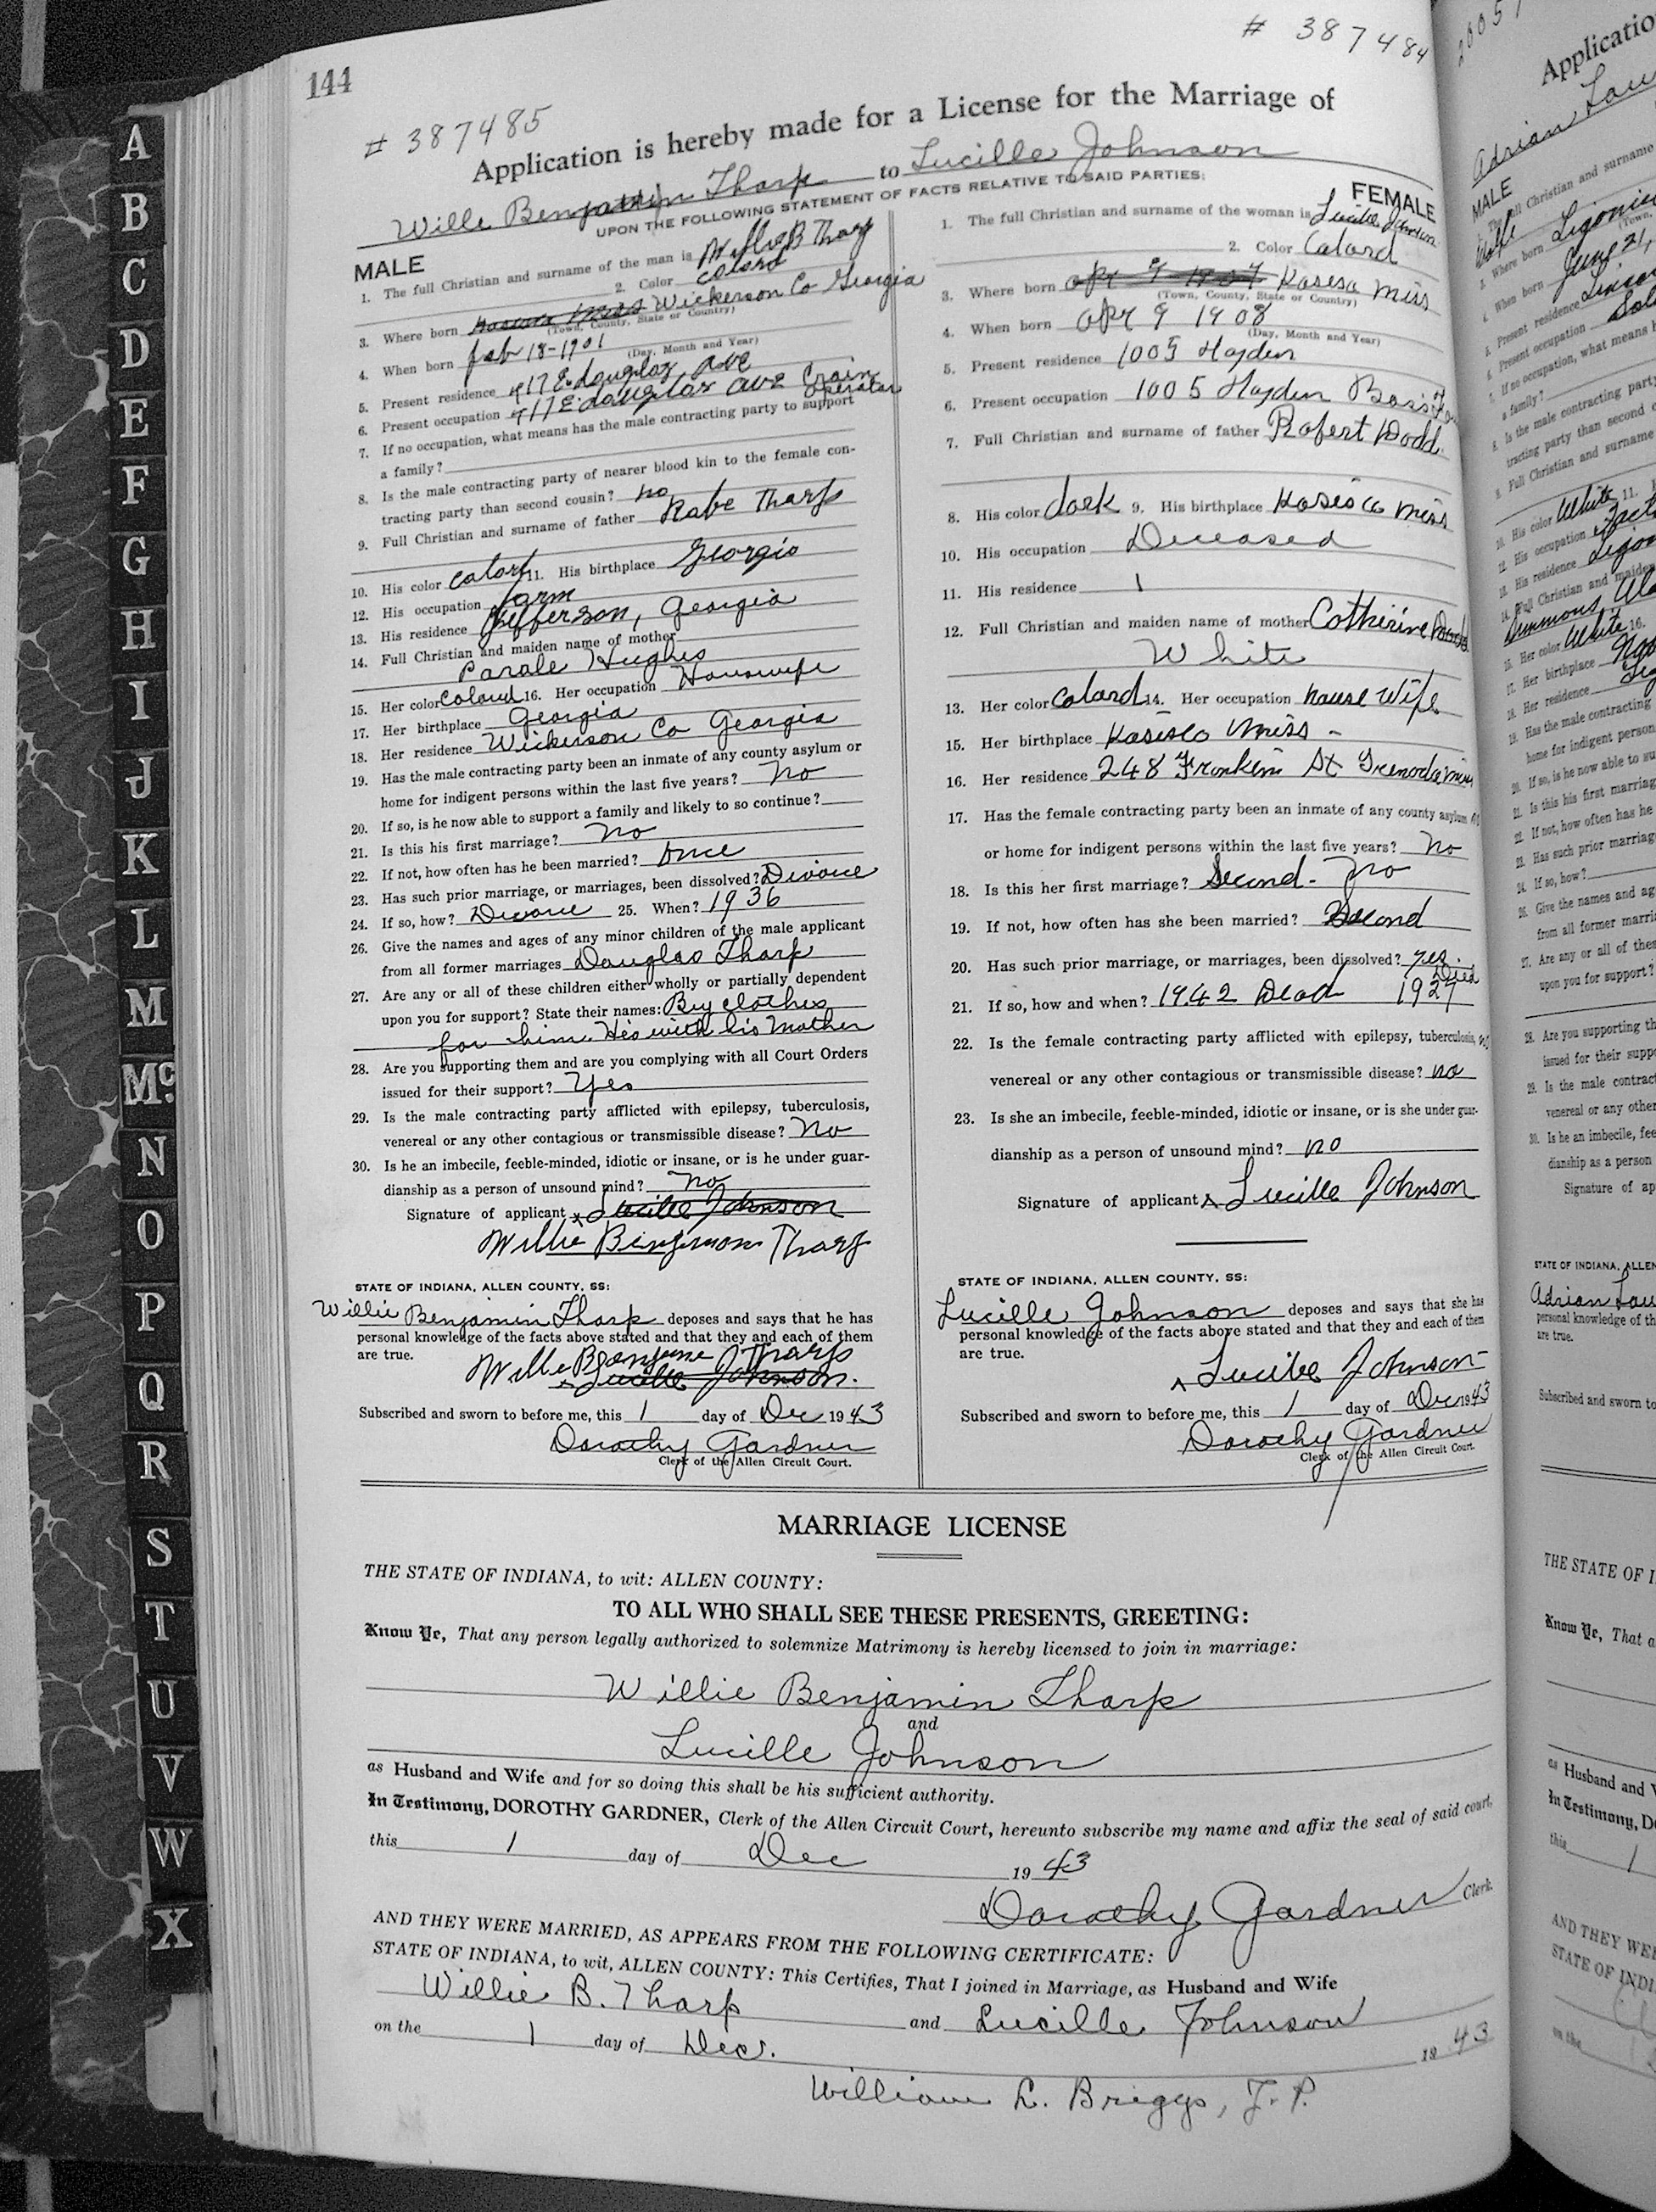 # 387484
144
# 387485
Application is hereby made for a License for the Marriage of
Wille Benjamin Tharp to Lucille Johnson
UPON THE FOLLOWING STATEMENT OF FACTS RELATIVE TO SAID PARTIES:
MALE
1. The full Christian and surname of the man is Willie B Tharp
2. Color Colord
3. Where born Wickerson Co Georgia
(Town, County, State or Country)
4. When born feb 18-1901
(Day, Month and Year)
5. Present residence 417 E. douglas ave
6. Present occupation 417 E. douglas ave Crain operator
7. If no occupation, what means has the male contracting party to support
a family?
8. Is the male contracting party of nearer blood kin to the female con-
tracting party than second cousin? no
9. Full Christian and surname of father Rabe Tharp
10. His color Colord 11. His birthplace Georgia
12. His occupation farm
13. His residence Jefferson, Georgia
14. Full Christian and maiden name of mother
Parale Hughes
15. Her color Colord 16. Her occupation Housewife
17. Her birthplace Georgia
18. Her residence Wickerson Co Georgia
19. Has the male contracting party been an inmate of any county asylum or
home for indigent persons within the last five years? No
20. If so, is he now able to support a family and likely to so continue?
21. Is this his first marriage? No
22. If not, how often has he been married? Once
23. Has such prior marriage, or marriages, been dissolved? Divorce
24. If so, how? Divorce 25. When? 1936
26. Give the names and ages of any minor children of the male applicant
from all former marriages Douglas Tharp
27. Are any or all of these children either wholly or partially dependent
upon you for support? State their names: Buy clothes
for him. He is with his Mother
28. Are you supporting them and are you complying with all Court Orders
issued for their support? Yes
29. Is the male contracting party afflicted with epilepsy, tuberculosis,
venereal or any other contagious or transmissible disease? No
30. Is he an imbecile, feeble-minded, idiotic or insane, or is he under guar-
dianship as a person of unsound mind? No
Signature of applicant x Lucille Johnson
Willie Binjimon Tharp
STATE OF INDIANA, ALLEN COUNTY, SS:
Willie Benjamin Tharp deposes and says that he has
personal knowledge of the facts above stated and that they and each of them
are true.
Willie Benjamin Tharp
x Lucille Johnson.
Subscribed and sworn to before me, this 1 day of Dec 1943
Dorothy Gardner
Clerk of the Allen Circuit Court.
FEMALE
1. The full Christian and surname of the woman is Lucille Johnson
2. Color Colard
3. Where born apr 9 1907 Kosisco Miss
(Town, County, State or Country)
4. When born apr 9 1908
(Day, Month and Year)
5. Present residence 1005 Hayden
6. Present occupation 1005 Hayden
7. Full Christian and surname of father Robert Dodd
8. His color dark 9. His birthplace Kosisco Miss
10. His occupation Deceased
11. His residence
12. Full Christian and maiden name of mother Cotherine
White
13. Her color Colard 14. Her occupation house Wife
15. Her birthplace Kosisco Miss -
16. Her residence 248 Fronklin St Grenoda Miss
17. Has the female contracting party been an inmate of any county asylum
or home for indigent persons within the last five years? No
18. Is this her first marriage? Second - No
19. If not, how often has she been married? Second
20. Has such prior marriage, or marriages, been dissolved? yes.
21. If so, how and when? 1942 Dead Died 1927
22. Is the female contracting party afflicted with epilepsy, tuberculosis, no
venereal or any other contagious or transmissible disease? no
23. Is she an imbecile, feeble-minded, idiotic or insane, or is she under guar-
dianship as a person of unsound mind? no
Signature of applicant x Lucille Johnson
STATE OF INDIANA, ALLEN COUNTY, SS:
Lucille Johnson deposes and says that she has
personal knowledge of the facts above stated and that they and each of them
are true.
x Lucille Johnson
Subscribed and sworn to before me, this 1 day of Dec 1943
Dorothy Gardner
Clerk of the Allen Circuit Court.
MARRIAGE LICENSE
THE STATE OF INDIANA, to wit: ALLEN COUNTY:
TO ALL WHO SHALL SEE THESE PRESENTS, GREETING:
Know Ye, That any person legally authorized to solemnize Matrimony is hereby licensed to join in marriage:
Willie Benjamin Tharp
and
Lucille Johnson
as Husband and Wife and for so doing this shall be his sufficient authority.
In Testimony, DOROTHY GARDNER, Clerk of the Allen Circuit Court, hereunto subscribe my name and affix the seal of said court,
this 1 day of Dec 1943
Dorothy Gardner Clerk.
AND THEY WERE MARRIED, AS APPEARS FROM THE FOLLOWING CERTIFICATE:
STATE OF INDIANA, to wit, ALLEN COUNTY: This Certifies, That I joined in Marriage, as Husband and Wife
Willie B. Tharp and Lucille Johnson
on the 1 day of Dec. 1943
William L. Briggs, J.P.
A
B
C
D
E
F
G
H
I
J
K
L
M
Mc
N
O
P
Q
R
S
T
U
V
W
X